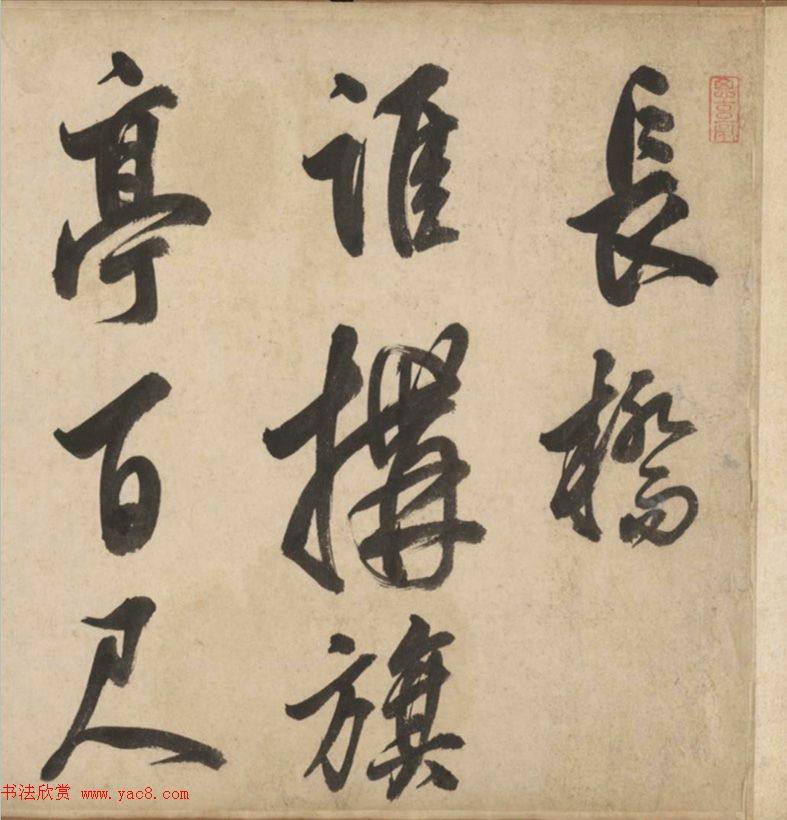 長橋
誰構旗
亭百尺
书法欣赏 www.yac8.com